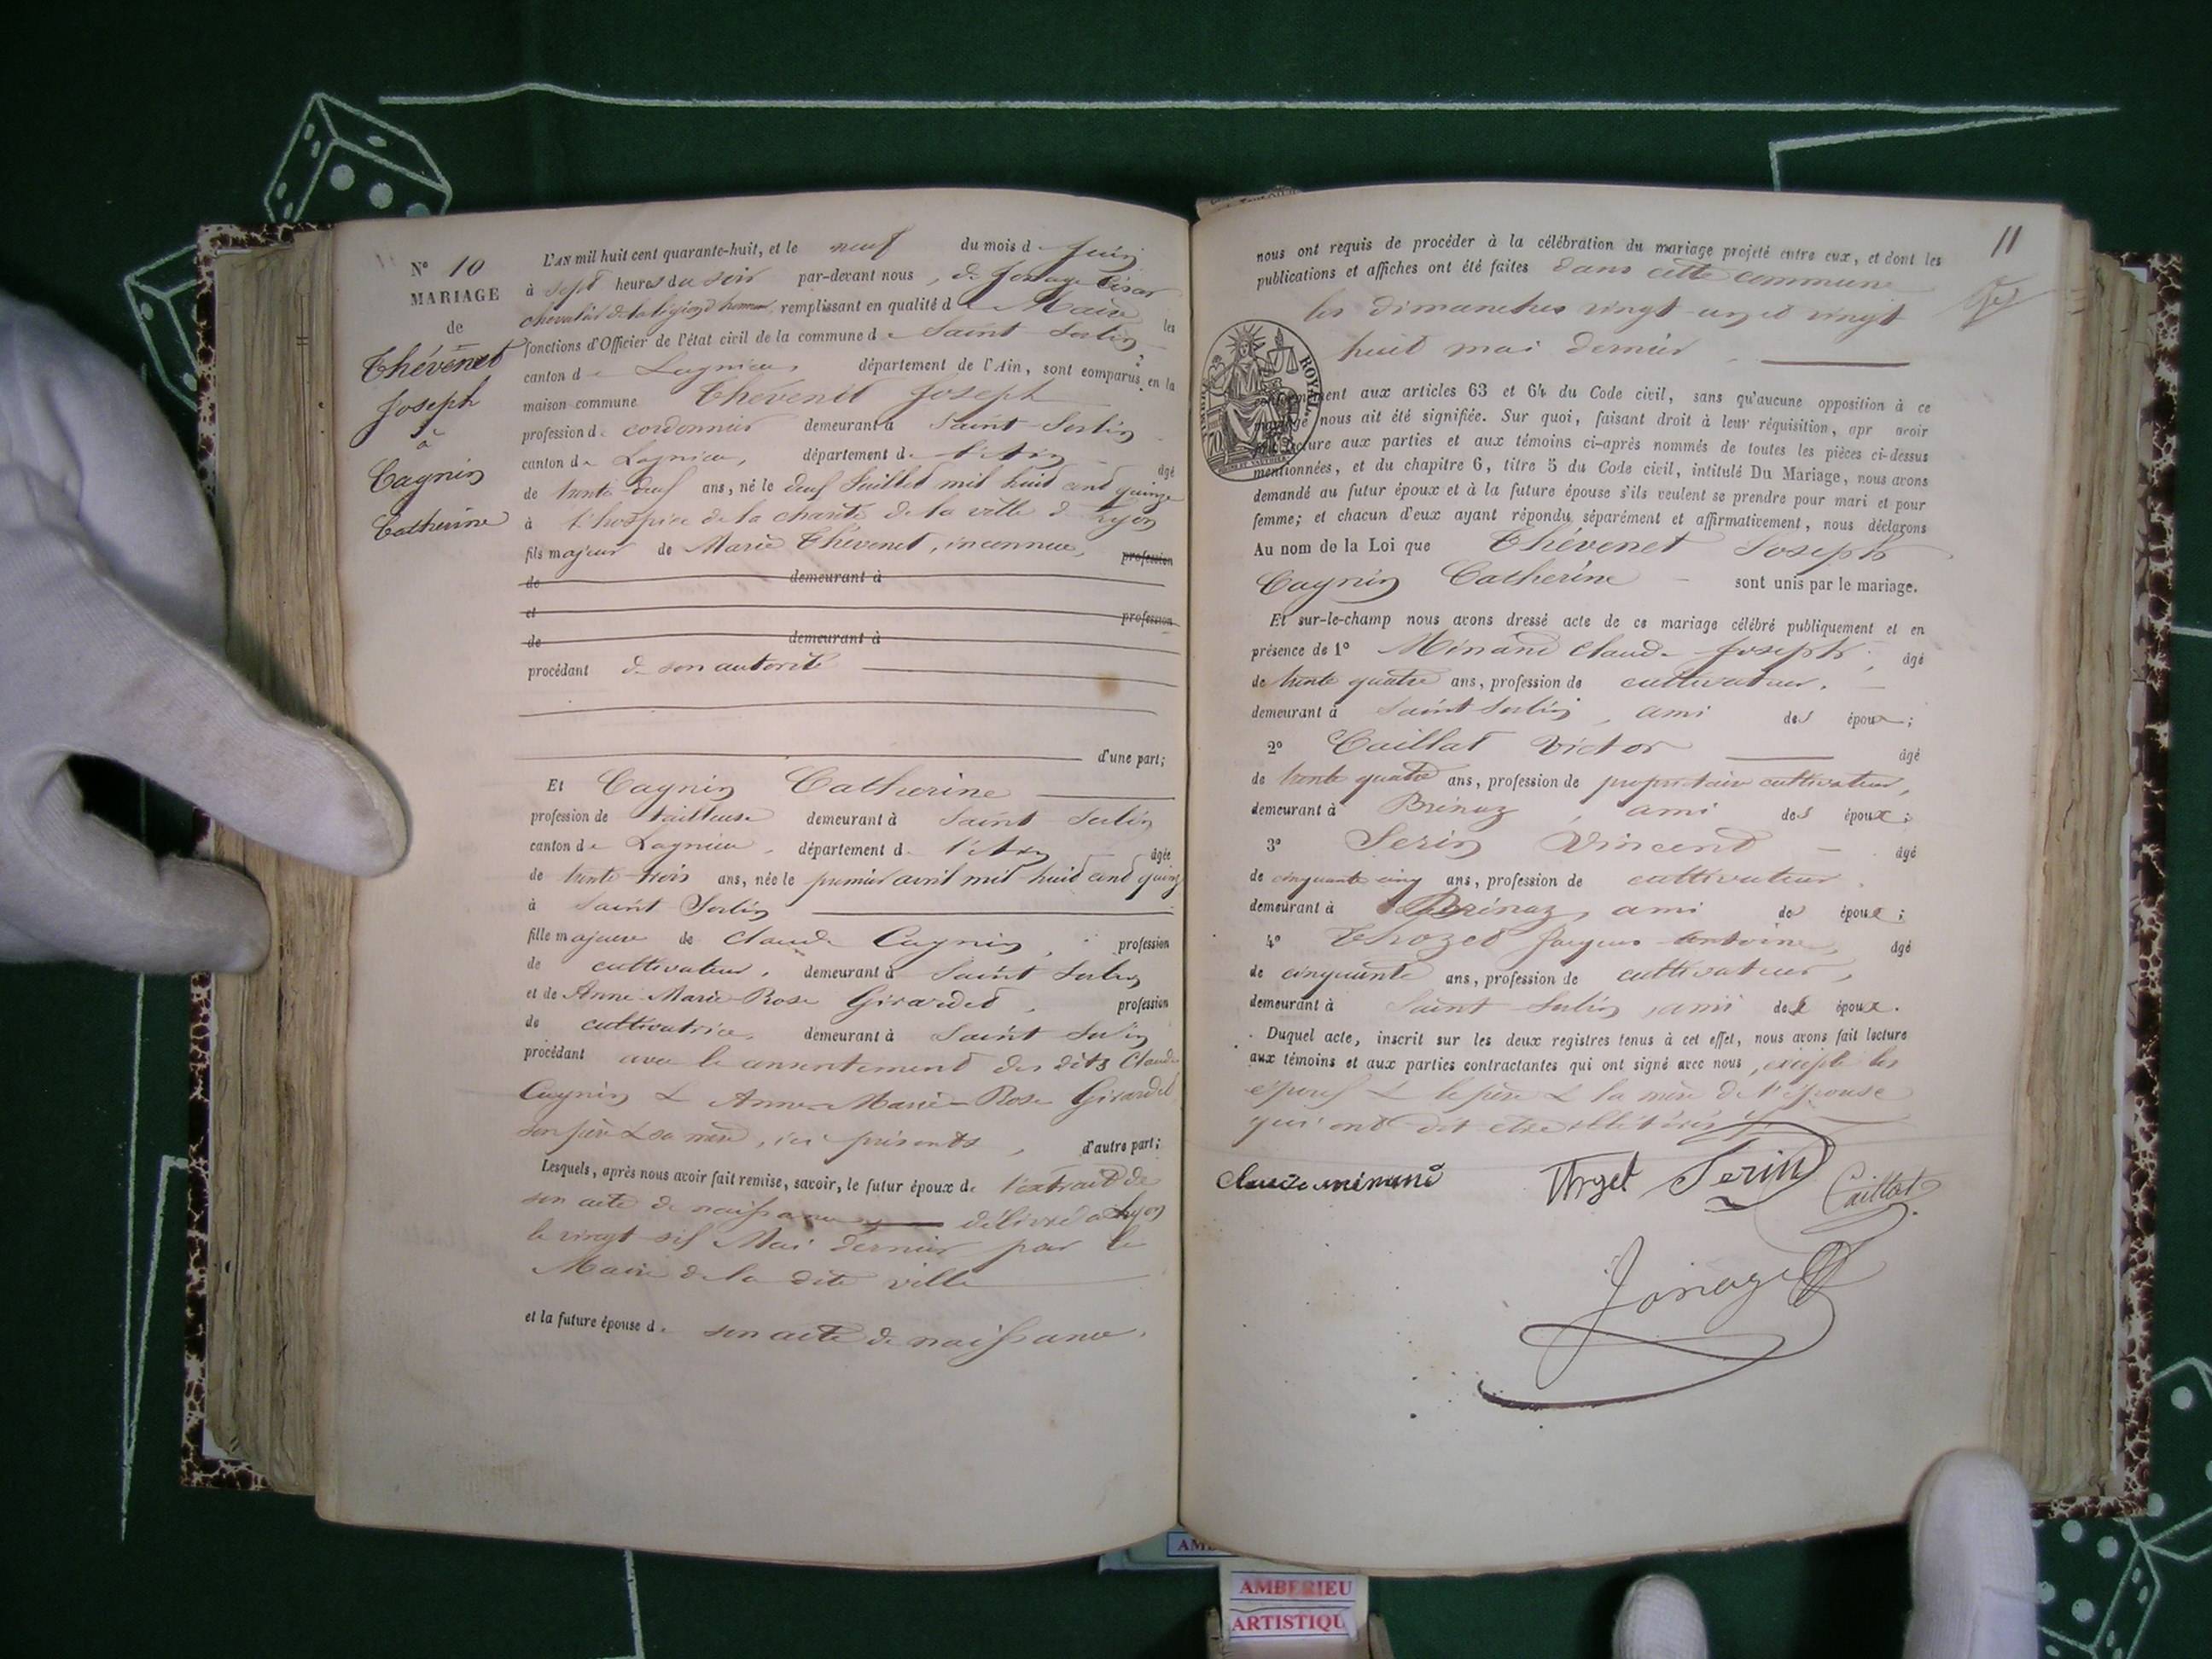 N° 10
MARIAGE
de
Thévenet
Joseph
à
Cagnin
Catherine
L'AN mil huit cent quarante-huit, et le neuf du mois de Juin
à sept heures du soir par-devant nous, de Jonage César
chevalier de la légion d'honneur, remplissant en qualité de Maire les
fonctions d'Officier de l'état civil de la commune de Saint-Sorlin
canton de Lagnieu, département de l'Ain, sont comparus en la
maison commune Thévenet Joseph
profession de cordonnier demeurant à Saint-Sorlin
canton de Lagnieu, département de l'Ain âgé
de trente-deux ans, né le deux Juillet mil huit cent quinze
à l'hospice de la charité de la ville de Lyon
fils majeur de Marie Thévenet, inconnue, profession
de demeurant à
et profession
de demeurant à
procédant de son autorité
d'une part;
Et Cagnin Catherine
profession de tailleuse demeurant à Saint Sorlin
canton de Lagnieu, département de l'Ain âgée
de trente-trois ans, née le premier avril mil huit cent quinze
à Saint-Sorlin
fille majeure de Claude Cagnin, profession
de cultivateur, demeurant à Saint Sorlin
et de Anne-Marie-Rose Girardet, profession
de cultivatrice, demeurant à Saint Sorlin
procédant avec le consentement des dits Claude
Cagnin & Anne-Marie-Rose Girardet
son père & sa mère, ici présents, d'autre part;
Lesquels, après nous avoir fait remise, savoir, le futur époux de l'extrait de
son acte de naissance délivré à Lyon
le vingt-six Mai dernier par le
Maire de la dite ville
et la future épouse de son acte de naissance.
11
nous ont requis de procéder à la célébration du mariage projeté entre eux, et dont les
publications et affiches ont été faites dans cette commune
les dimanches vingt-un et vingt
huit mai dernier
ROYAL
conformément aux articles 63 et 64 du Code civil, sans qu'aucune opposition à ce
mariage nous ait été signifiée. Sur quoi, faisant droit à leur réquisition, apr avoir
fait lecture aux parties et aux témoins ci-après nommés de toutes les pièces ci-dessus
mentionnées, et du chapitre 6, titre 5 du Code civil, intitulé Du Mariage, nous avons
demandé au futur époux et à la future épouse s'ils veulent se prendre pour mari et pour
femme; et chacun d'eux ayant répondu séparément et affirmativement, nous déclarons
Au nom de la Loi que Thévenet Joseph
Cagnin Catherine sont unis par le mariage.
Et sur-le-champ nous avons dressé acte de ce mariage célébré publiquement et en
présence de 1° Ménand Claude Joseph, âgé
de trente quatre ans, profession de cultivateur,
demeurant à Saint Sorlin, ami des époux;
2° Caillat Victor âgé
de trente quatre ans, profession de propriétaire cultivateur,
demeurant à Brénaz, ami des époux;
3° Serin Vincent âgé
de cinquante cinq ans, profession de cultivateur
demeurant à Brénaz, ami des époux;
4° Throzet Jacques Antoine, âgé
de cinquante ans, profession de cultivateur,
demeurant à Saint Sorlin, ami des époux.
Duquel acte, inscrit sur les deux registres tenus à cet effet, nous avons fait lecture
aux témoins et aux parties contractantes qui ont signé avec nous, excepté les
époux & le père & la mère de l'épouse
qui ont dit être illétérés
Claude ménand Serin Caillat
Jonage
AMBERIEU
ARTISTIQU